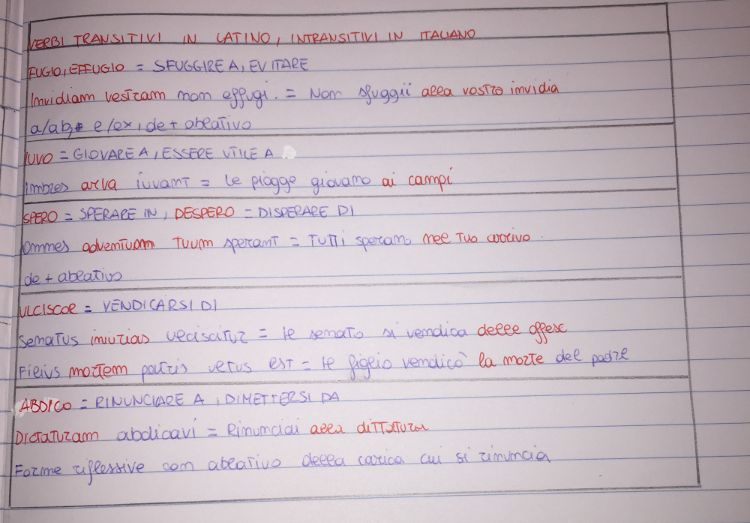 VERBI TRANSITIVI IN LATINO, INTRANSITIVI IN ITALIANO
FUGIO, EFFUGIO = SFUGGIRE A, EVITARE
Invidiam vestram non effugi. = Non sfuggii alla vostra invidia
a/ab, e/ex, de + ablativo
IUVO = GIOVARE A, ESSERE UTILE A
Imbres arva iuvant = le piogge giovano ai campi
SPERO = SPERARE IN, DESPERO = DISPERARE DI
Omnes adventum tuum sperant = Tutti sperano nel tuo arrivo.
de + ablativo
ULCISCOR = VENDICARSI DI
Senatus iniurias ulciscitur = Il senato si vendica delle offese
Filius mortem patris ultus est = Il figlio vendicò la morte del padre
ABDICO = RINUNCIARE A, DIMETTERSI DA
Dictaturam abdicavi = Rinunciai alla dittatura
Forme riflessive con ablativo della carica cui si rinuncia